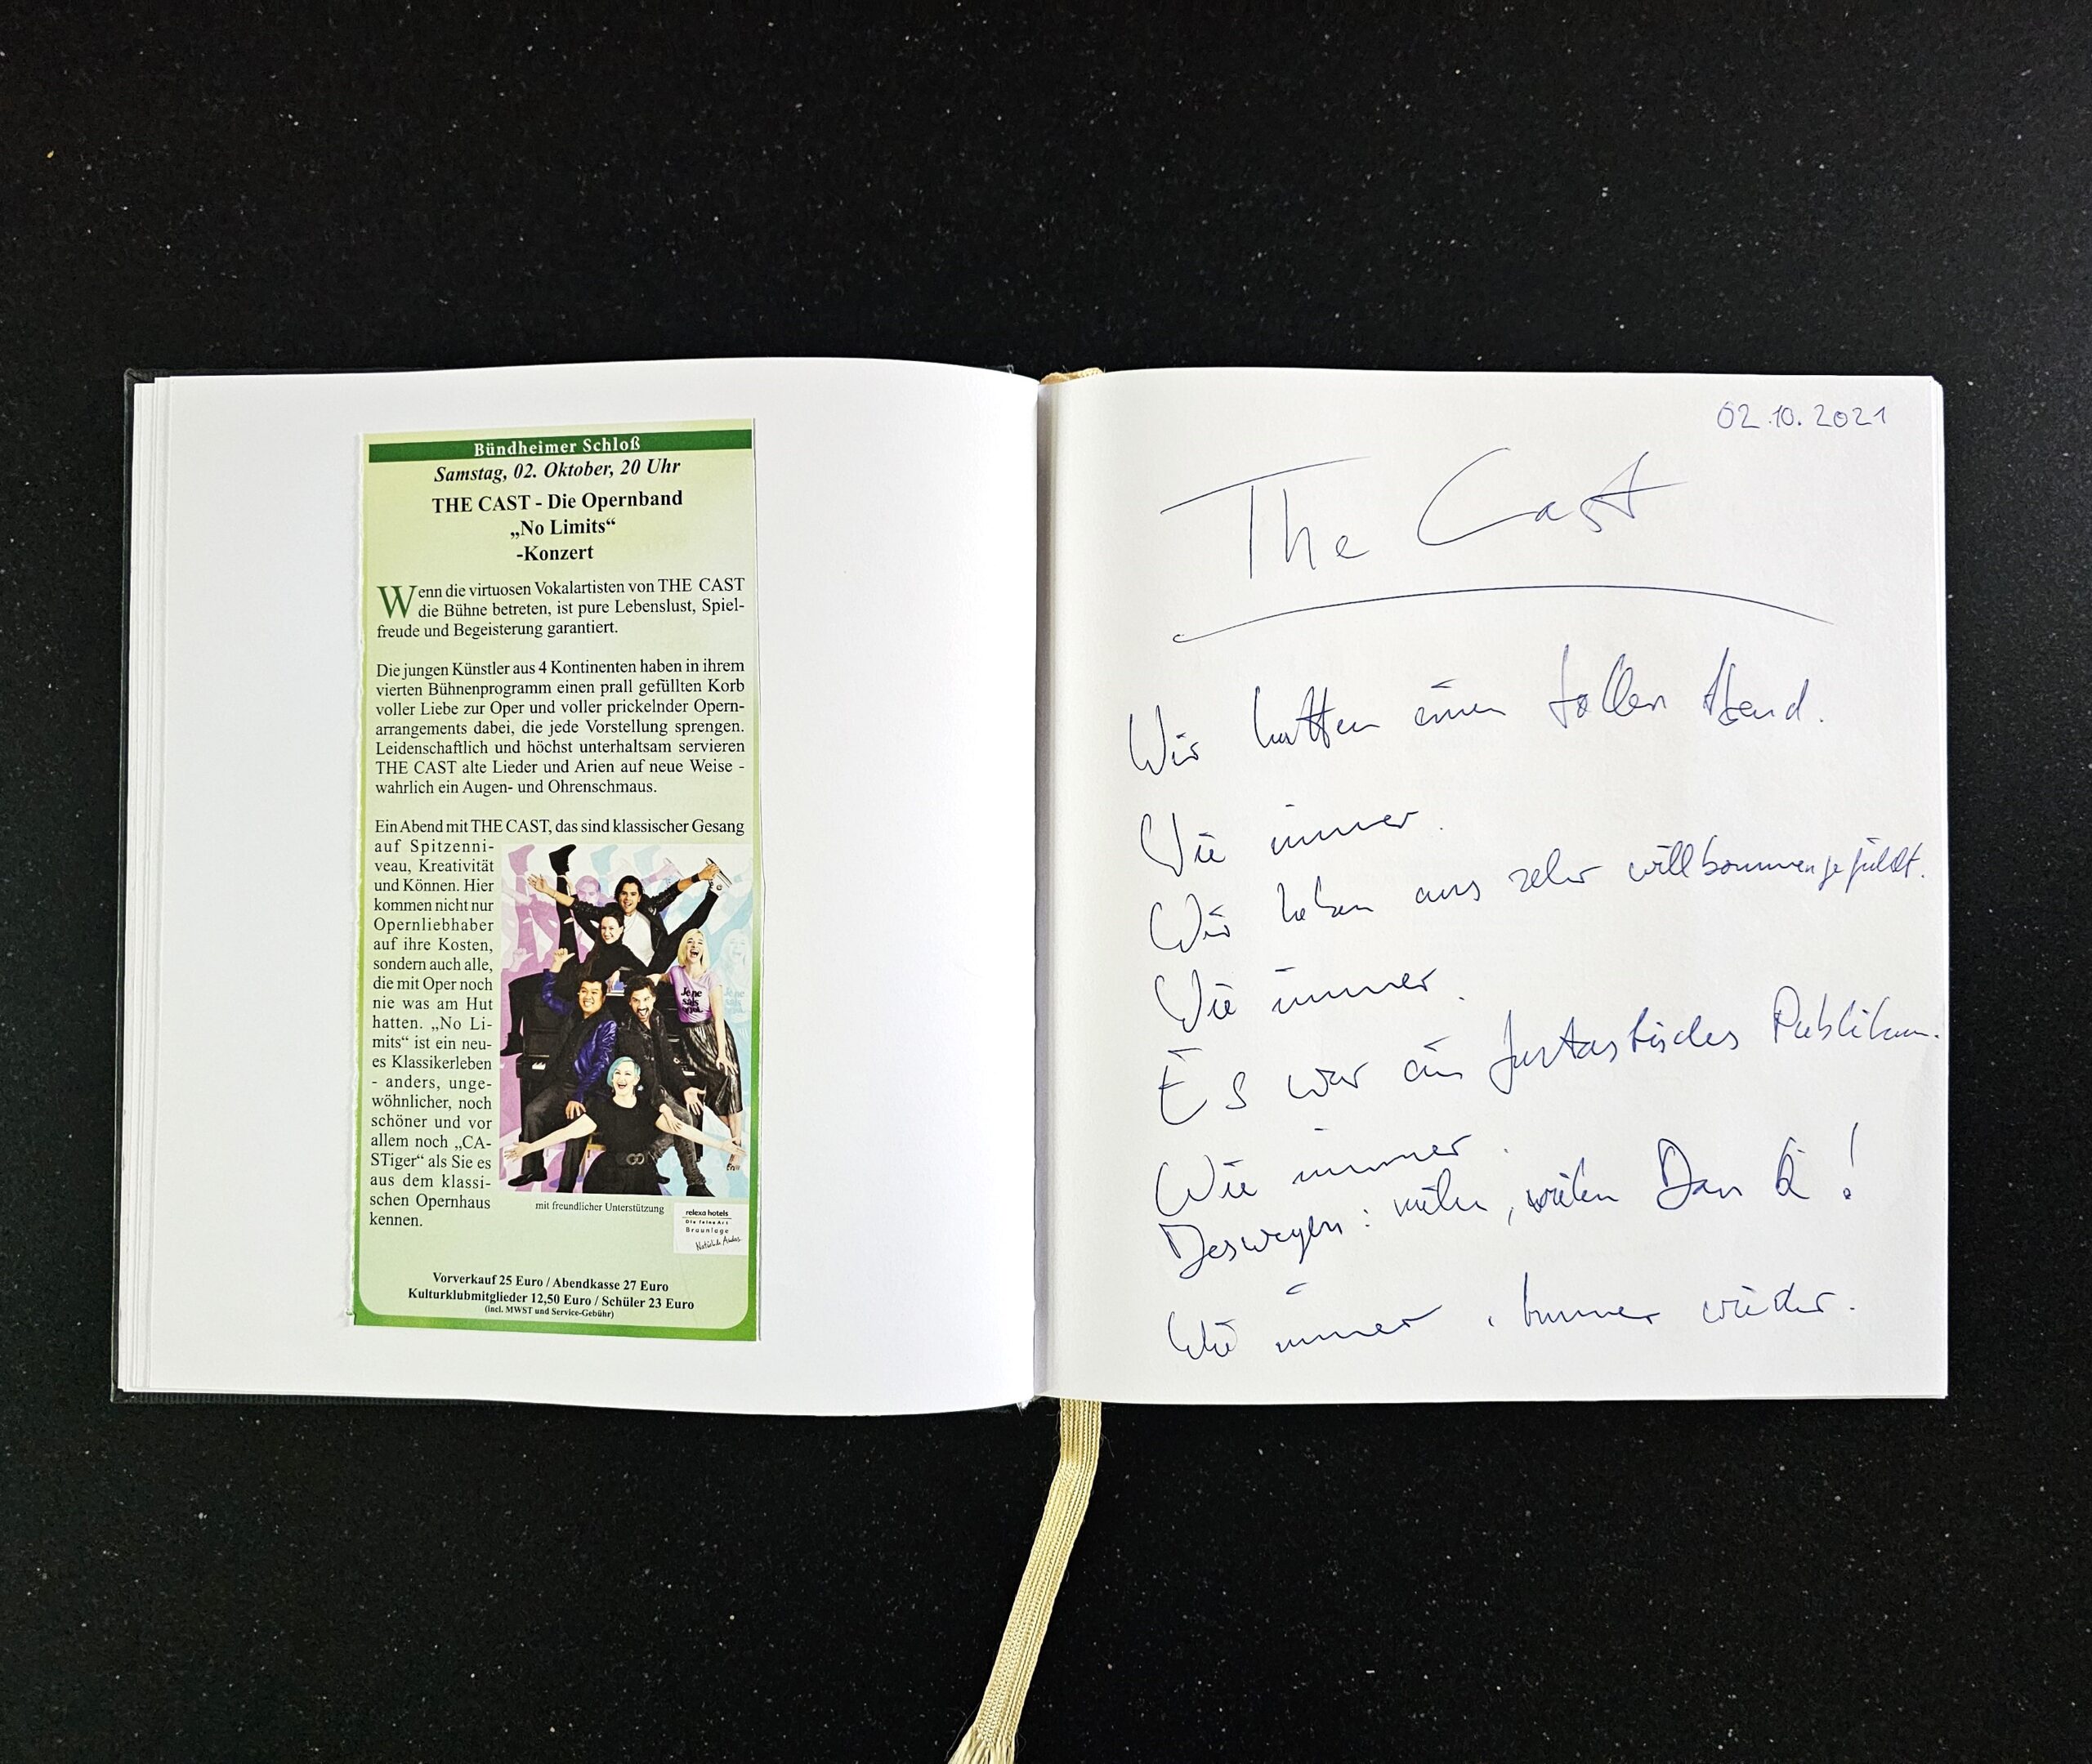 Bündheimer Schloß
Samstag, 02. Oktober, 20 Uhr
THE CAST - Die Opernband
„No Limits“
-Konzert
Wenn die virtuosen Vokalartisten von THE CAST
die Bühne betreten, ist pure Lebenslust, Spiel-
freude und Begeisterung garantiert.
Die jungen Künstler aus 4 Kontinenten haben in ihrem
vierten Bühnenprogramm einen prall gefüllten Korb
voller Liebe zur Oper und voller prickelnder Opern-
arrangements dabei, die jede Vorstellung sprengen.
Leidenschaftlich und höchst unterhaltsam servieren
THE CAST alte Lieder und Arien auf neue Weise -
wahrlich ein Augen- und Ohrenschmaus.
Ein Abend mit THE CAST, das sind klassischer Gesang
auf Spitzenni-
veau, Kreativität
und Können. Hier
kommen nicht nur
Opernliebhaber
auf ihre Kosten,
sondern auch alle,
die mit Oper noch
nie was am Hut
hatten. „No Li-
mits“ ist ein neu-
es Klassikerleben
- anders, unge-
wöhnlicher, noch
schöner und vor
allem noch „CA-
STiger“ als Sie es
aus dem klassi-
schen Opernhaus
kennen.
Je ne
sais
quoi.
mit freundlicher Unterstützung
relexa hotels
Die feine Art
Braunlage
Natürlich Anders
Vorverkauf 25 Euro / Abendkasse 27 Euro
Kulturklubmitglieder 12,50 Euro / Schüler 23 Euro
(incl. MWST und Service-Gebühr)
02.10.2021
The Cast
Wir hatten einen tollen Abend.
Wie immer.
Wir haben uns sehr willkommen gefühlt.
Wie immer.
Es war ein fantastisches Publikum.
Wie immer.
Deswegen: vielen, vielen Dank!
Wie immer, immer wieder.